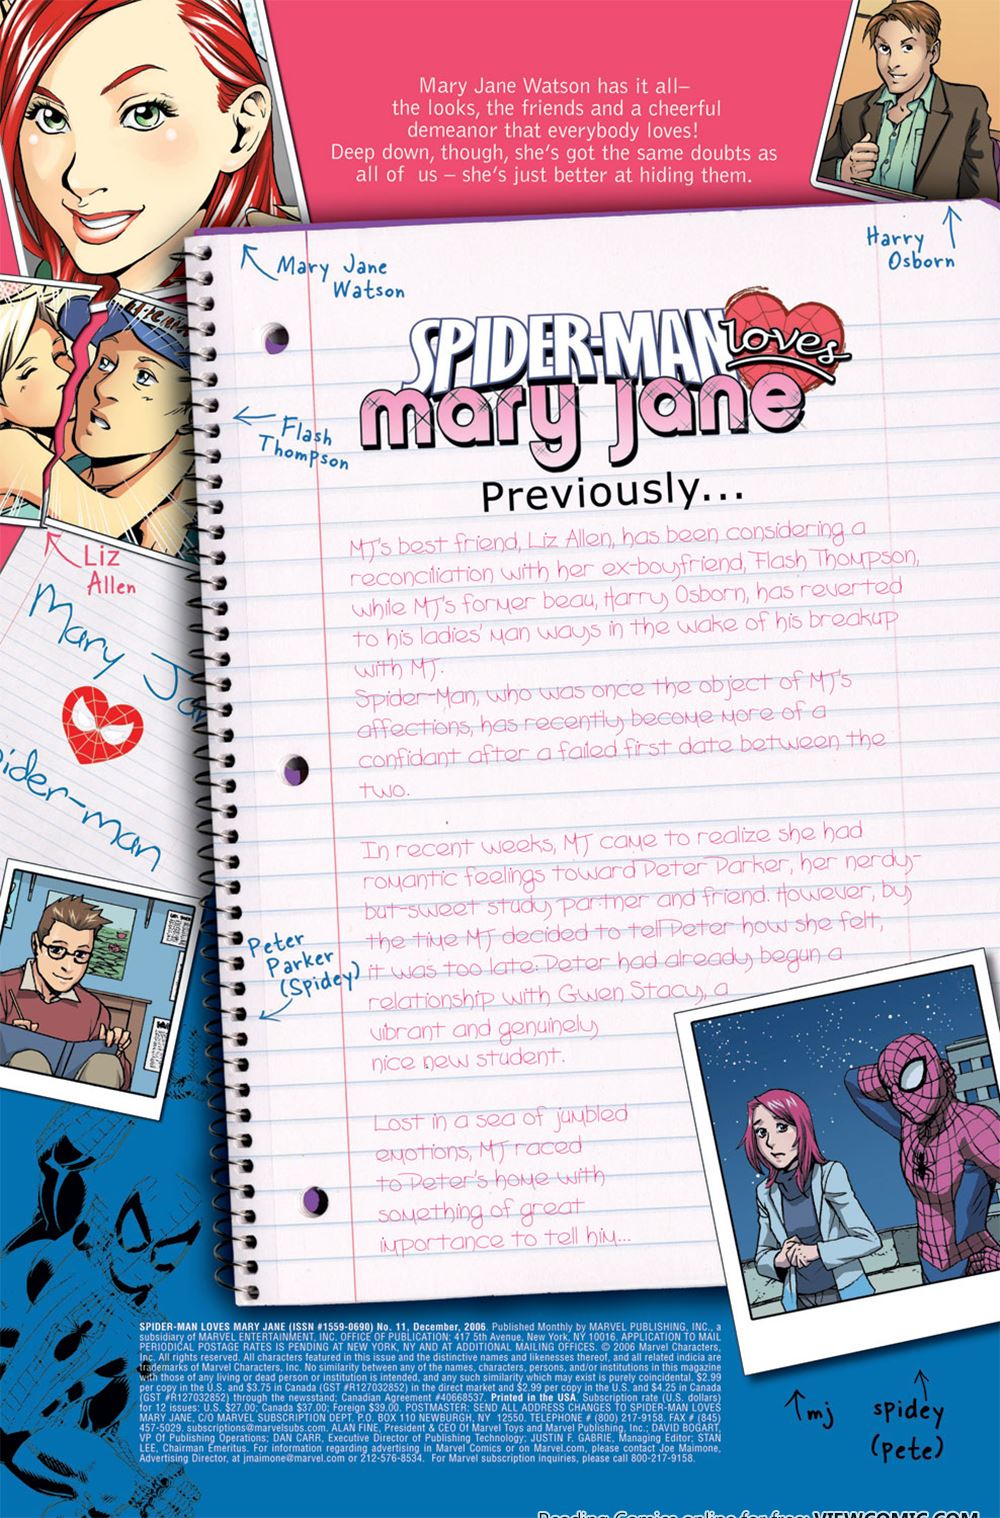 Mary Jane Watson has it all–
the looks, the friends and a cheerful
demeanor that everybody loves!
Deep down, though, she's got the same doubts as
all of us – she's just better at hiding them.
Mary Jane
Watson
Harry
Osborn
SPIDER-MAN loves
mary jane
Flash
Thompson
Previously...
Liz
Allen
MJ's best friend, Liz Allen, has been considering a
reconciliation with her ex-boyfriend, Flash Thompson,
while MJ's former beau, Harry Osborn, has reverted
to his ladies' man ways in the wake of his breakup
with MJ.
Spider-Man, who was once the object of MJ's
affections, has recently become more of a
confidant after a failed first date between the
two.
Mary Jan
ider-man
In recent weeks, MJ came to realize she had
romantic feelings toward Peter Parker, her nerdy-
but-sweet study partner and friend. However, by
the time MJ decided to tell Peter how she felt,
it was too late: Peter had already begun a
relationship with Gwen Stacy, a
vibrant and genuinely
nice new student.
Peter
Parker
(Spidey)
Lost in a sea of jumbled
emotions, MJ raced
to Peter's home with
something of great
importance to tell him...
SPIDER-MAN LOVES MARY JANE (ISSN #1559-0690) No. 11, December, 2006. Published Monthly by MARVEL PUBLISHING, INC., a
subsidiary of MARVEL ENTERTAINMENT, INC. OFFICE OF PUBLICATION: 417 5th Avenue, New York, NY 10016. APPLICATION TO MAIL
PERIODICAL POSTAGE RATES IS PENDING AT NEW YORK, NY AND AT ADDITIONAL MAILING OFFICES. © 2006 Marvel Characters,
Inc. All rights reserved. All characters featured in this issue and the distinctive names and likenesses thereof, and all related indicia are
trademarks of Marvel Characters, Inc. No similarity between any of the names, characters, persons, and/or institutions in this magazine
with those of any living or dead person or institution is intended, and any such similarity which may exist is purely coincidental. $2.99
per copy in the U.S. and $3.75 in Canada (GST #R127032852) in the direct market and $2.99 per copy in the U.S. and $4.25 in Canada
(GST #R127032852) through the newsstand; Canadian Agreement #40668537. Printed in the USA. Subscription rate (U.S. dollars)
for 12 issues: U.S. $27.00; Canada $37.00; Foreign $39.00. POSTMASTER: SEND ALL ADDRESS CHANGES TO SPIDER-MAN LOVES
MARY JANE, C/O MARVEL SUBSCRIPTION DEPT. P.O. BOX 110 NEWBURGH, NY 12550. TELEPHONE # (800) 217-9158. FAX # (845)
457-5029. subscriptions@marvelsubs.com. ALAN FINE, President & CEO Of Marvel Toys and Marvel Publishing, Inc.; DAVID BOGART,
VP Of Publishing Operations; DAN CARR, Executive Director of Publishing Technology; JUSTIN F. GABRIE, Managing Editor; STAN
LEE, Chairman Emeritus. For information regarding advertising in Marvel Comics or on Marvel.com, please contact Joe Maimone,
Advertising Director, at jmaimone@marvel.com or 212-576-8534. For Marvel subscription inquiries, please call 800-217-9158.
mj
spidey
(pete)
Reading Comics online for free: VIEWCOMIC.COM